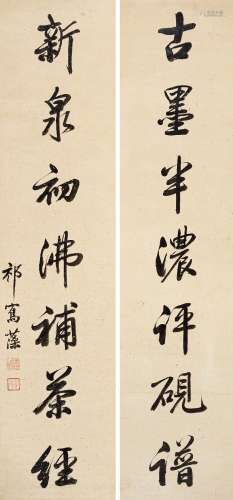 古墨半濃評硯譜
新泉初沸補茶經
祁寯藻